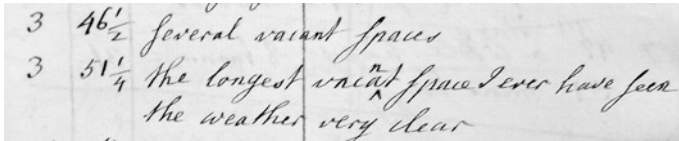 3 46 1/2 several vacant spaces
3 51 1/4 the longest vacant space I ever have seen
the weather very clear